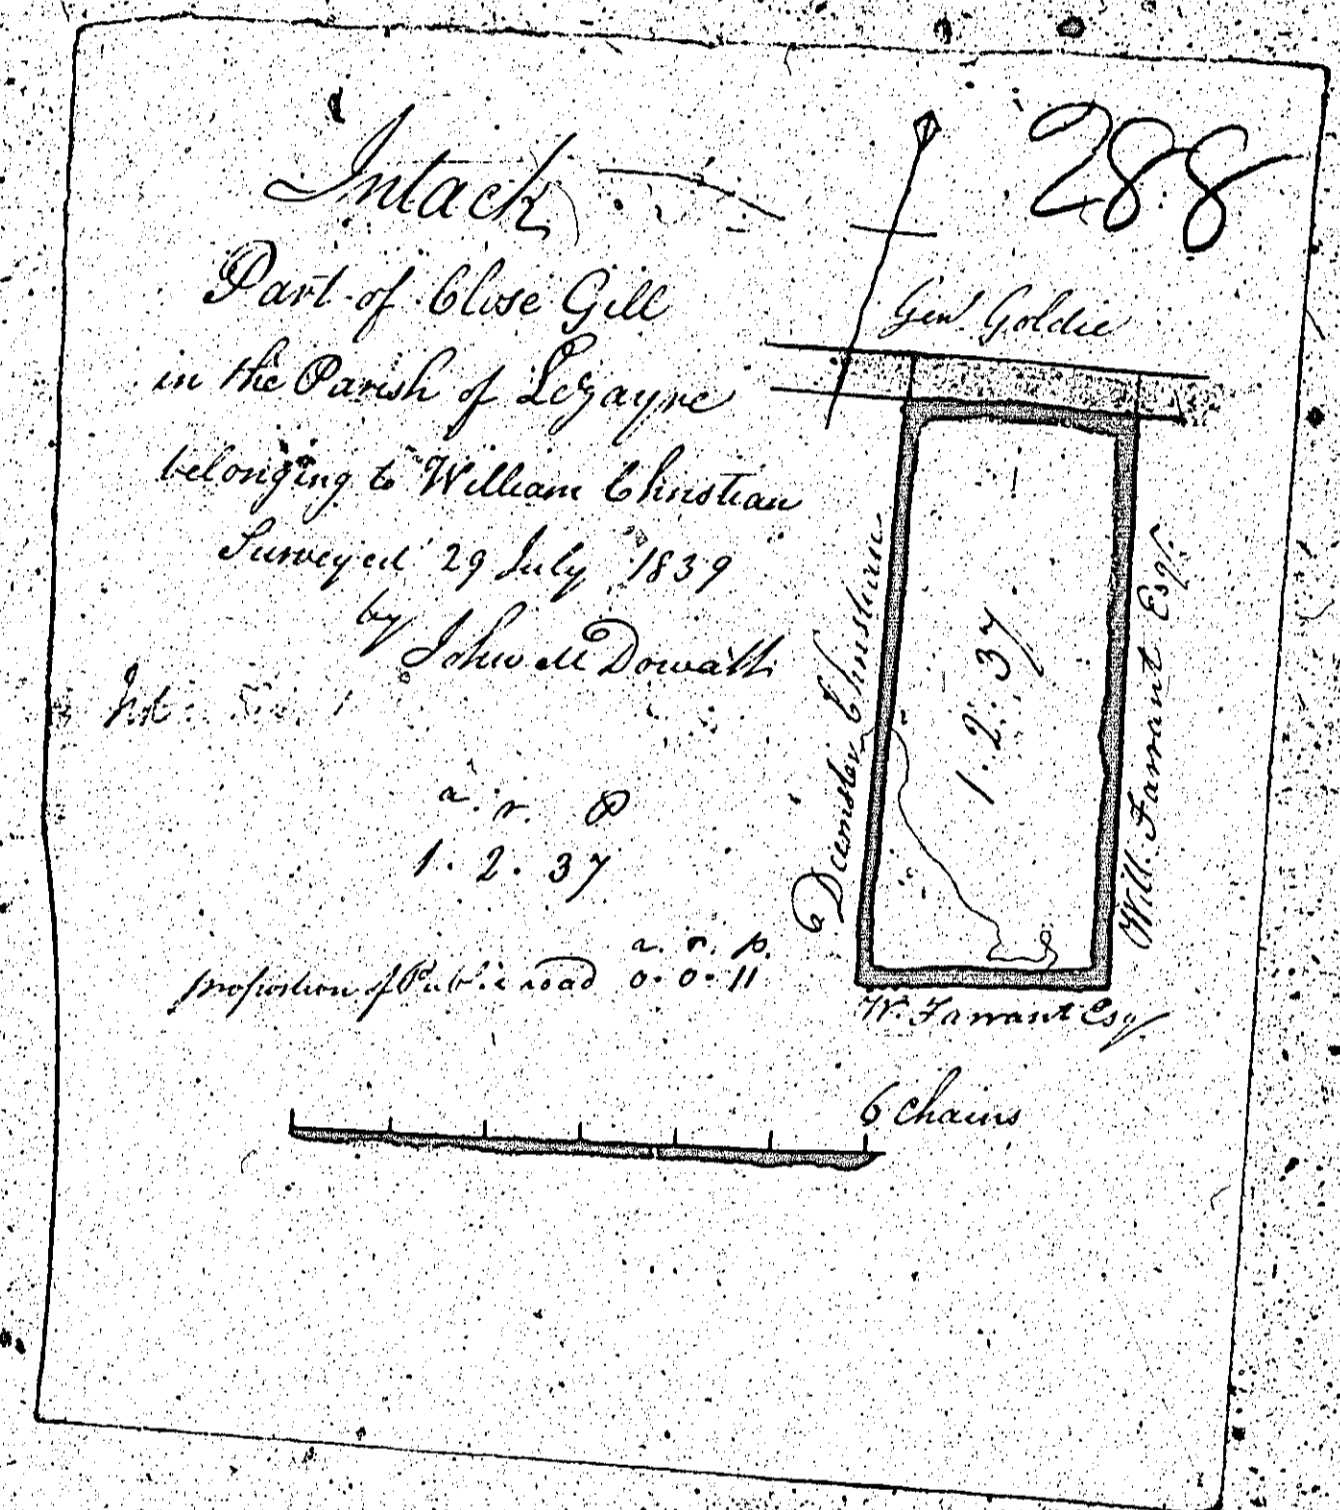 288
Intack
Part of Close Gill
in the Parish of Lezayre
belonging to William Christian
Surveyed 29 July 1839
by John McDowall
a. r. P
1. 2. 37
proportion of Public road a. r. p. 0. 0. 11
Genl. Goldie
Deemster Christian
1. 2. 37
Will. Farrant Esqr.
W. Farrant Esqr
6 chains